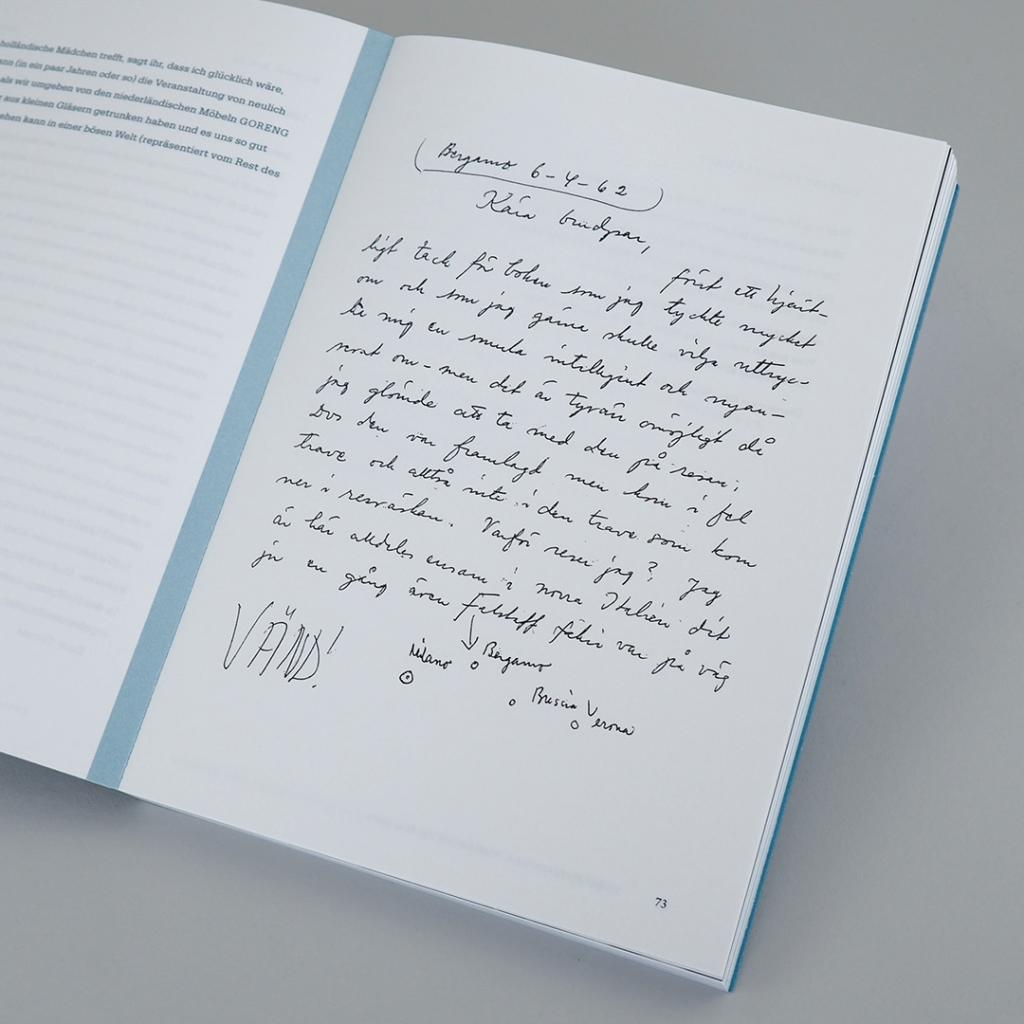 holländische Mädchen trefft, sagt ihr, dass ich glücklich wäre,
(in ein paar Jahren oder so) die Veranstaltung von neulich
als wir umgeben von den niederländischen Möbeln GORENG
aus kleinen Gläsern getrunken haben und es uns so gut
kann in einer bösen Welt (repräsentiert vom Rest des
Bergamo 6-4-62
Kära
först ett hjärt-
ligt tack för boken som jag tyckte mycket
om och som jag gärna skulle vilja uttryc-
ka mig en smula intelligent och nyan-
serat om - men det är tyvärr omöjligt då
jag glömde att ta med den på resan;
Dvs den var framlagd men kom i fel
trave och alltså inte i den trave som kom
ner i resväskan. Varför reser jag? Jag
är här alldeles ensam i norra Italien dit
ju en gång även Falstaff, fakir var på väg
VÄND!
Milano Bergamo
Brescia Verona
73